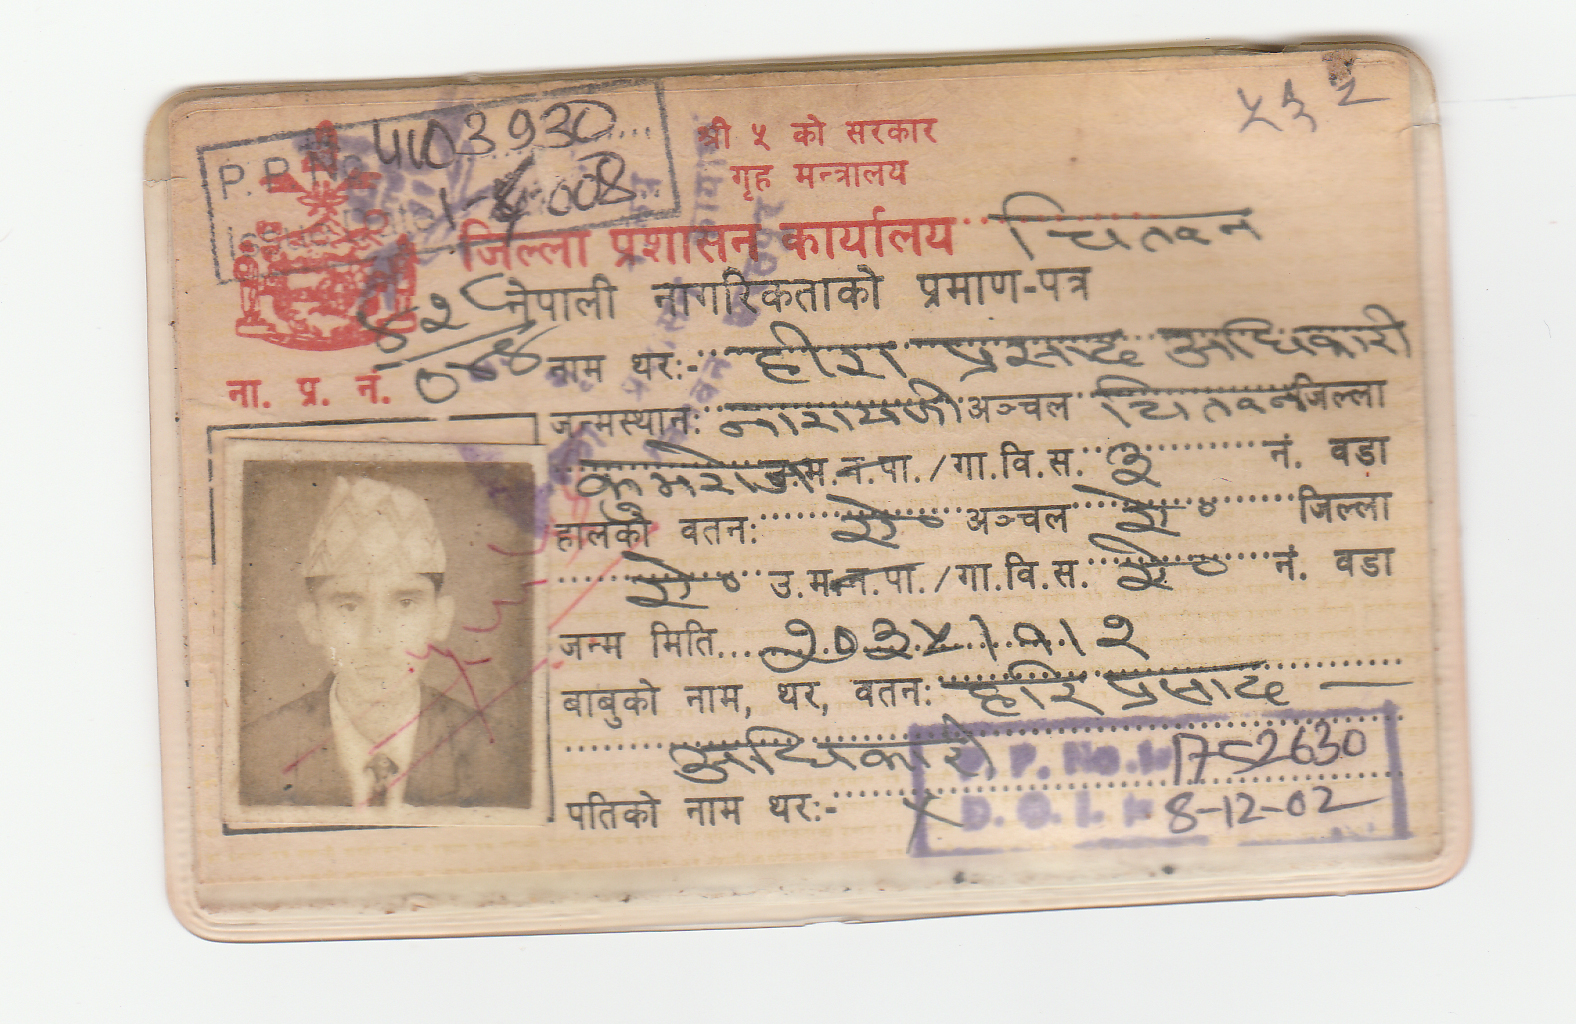 ५३२
P.P. No. 4103930
श्री ५ को सरकार
गृह मन्त्रालय
जिल्ला प्रशासन कार्यालय चितवन
नेपाली नागरिकताको प्रमाण-पत्र
नाम थर:- हीरा प्रसाद अधिकारी
ना. प्र. नं.
जन्मस्थान: नारायणी अञ्चल चितवन जिल्ला
उ.म.न.पा./गा.वि.स. ३ नं. वडा
हालको वतन: ऐ० अञ्चल ऐ० जिल्ला
ऐ० उ.म.न.पा./गा.वि.स. ऐ० नं. वडा
जन्म मिति २०३५।१।२
बाबुको नाम, थर, वतन: हरि प्रसाद
अधिकारी
पतिको नाम थर:- x
P. No. 1752630
D. O. I. 8-12-02